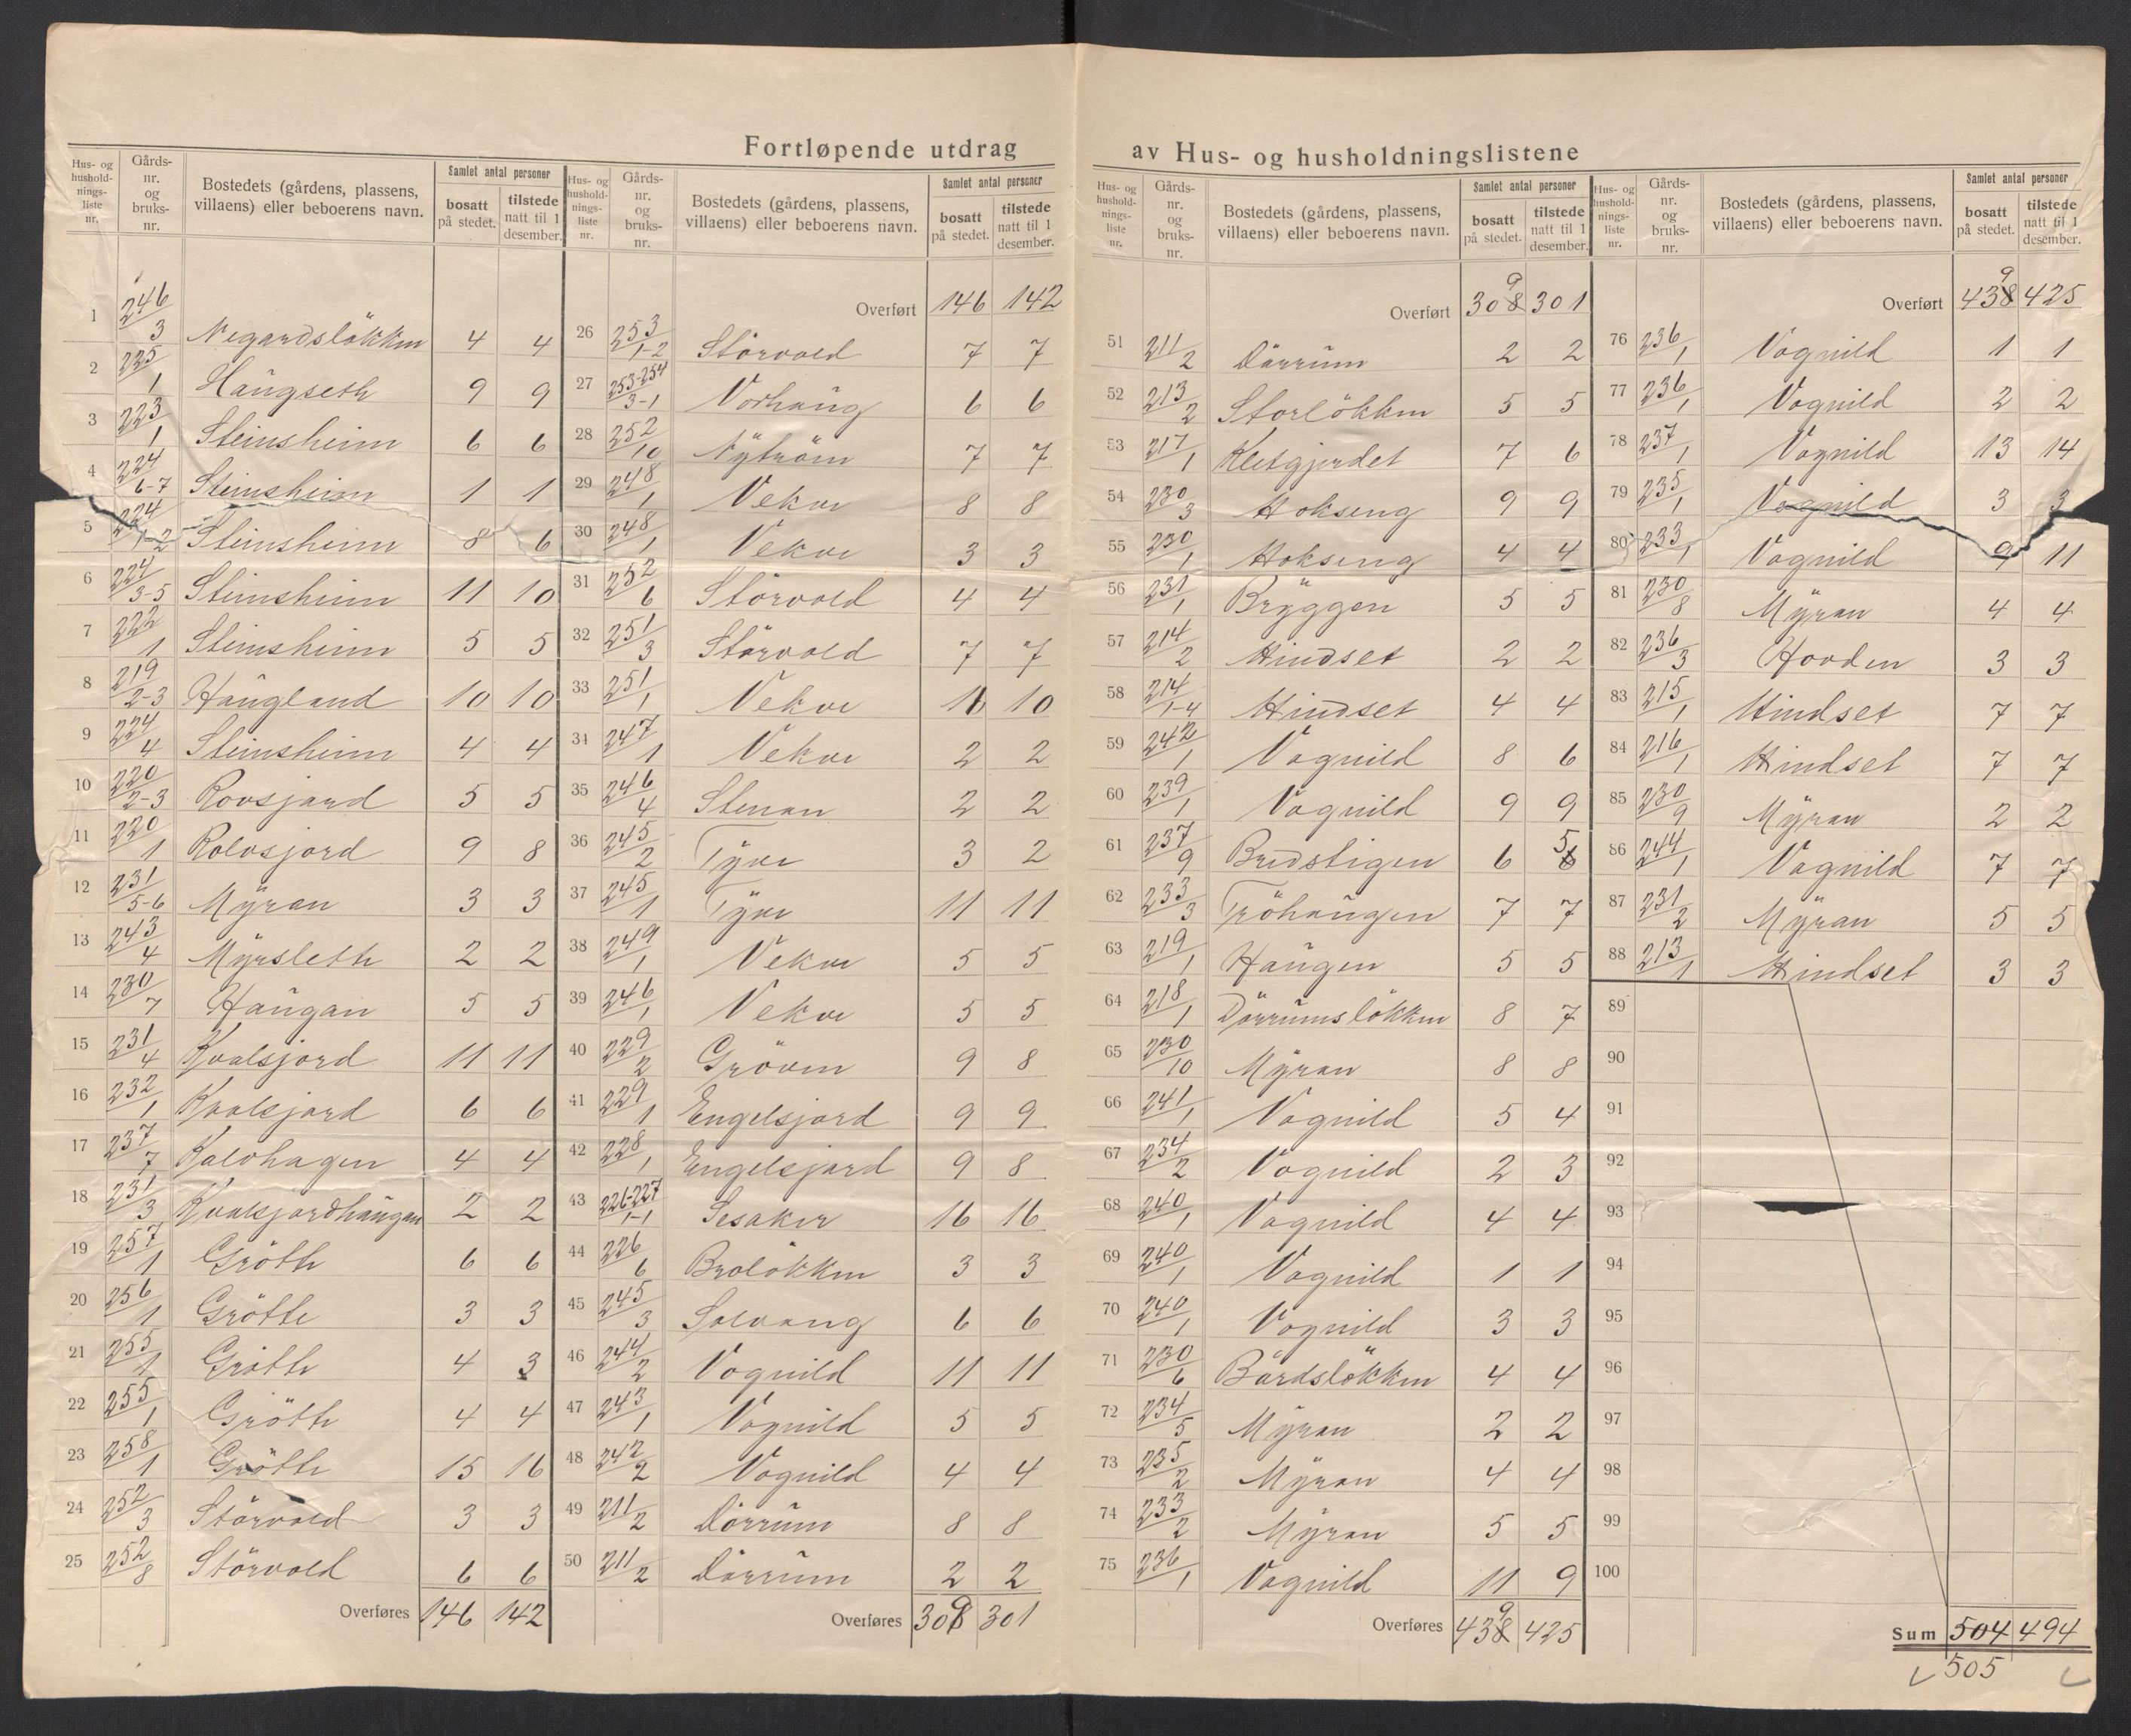 Fortløpende utdrag av Hus- og husholdningslistene
Hus- og husholdnings- liste nr. | Gårds- nr. og bruks- nr. | Bostedets (gårdens, plassens, villaens) eller beboerens navn. | Samlet antal personer bosatt på stedet. | tilstede natt til 1 desember.
1 246/3 Negardsløkken 4 4
2 225/1 Haŭgseth 9 9
3 223/1 Steinsheim 6 6
4 224/6-7 Steinsheim 1 1
5 224/1-2 Steinsheim 8 6
6 224/3-5 Steinsheim 11 10
7 222/1 Steinsheim 5 5
8 219/2-3 Haŭgland 10 10
9 224/4 Steinsheim 4 4
10 220/2-3 Rovsjord 5 5
11 220/1 Rolvsjord 9 8
12 231/5-6 Myran 3 3
13 243/4 Myrsleth 2 2
14 230/7 Haŭgan 5 5
15 231/4 Kvalsjord 11 11
16 232/1 Kvalsjord 6 6
17 237/7 Kalvhagen 4 4
18 231/3 Kvalsjordhaŭgan 2 2
19 257/1 Gröthe 6 6
20 256/1 Gröthe 3 3
21 255/1 Gröthe 4 3
22 255/1 Gröthe 4 4
23 258/1 Gröthe 15 16
24 252/3 Störvold 3 3
25 252/8 Störvold 6 6
Overføres 146 142
Hus- og hushold- nings- liste nr. | Gårds- nr. og bruks- nr. | Bostedets (gårdens, plassens, villaens) eller beboerens navn. | Samlet antal personer bosatt på stedet. | tilstede natt til 1 desember.
Overført 146 142
26 253/1-2 Störvold 7 7
27 253-254/3-1 Vorhaŭg 6 6
28 252/10 Nytröm 7 7
29 248/1 Vekve 8 8
30 248/1 Vekve 3 3
31 252/6 Störvold 4 4
32 251/3 Störvold 7 7
33 251/1 Vekve 11 10
34 247/1 Vekve 2 2
35 246/4 Stenan 2 2
36 245/2 Tyve 3 2
37 245/1 Tyve 11 11
38 249/1 Vekve 5 5
39 246/1 Vekve 5 5
40 229/2 Gröven 9 8
41 229/1 Engelsjord 9 9
42 228/1 Engelsjord 9 8
43 226-227/1-1 Sesaker 16 16
44 226/6 Brolökken 3 3
45 245/3 Solvang 6 6
46 244/2 Vognild 11 11
47 243/1 Vognild 5 5
48 242/2 Vognild 4 4
49 211/2 Dörrŭm 8 8
50 211/2 Dörrŭm 2 2
Overføres 309 301
Hus- og hushold- nings- liste nr. | Gårds- nr. og bruks- nr. | Bostedets (gårdens, plassens, villaens) eller beboerens navn. | Samlet antal personer bosatt på stedet. | tilstede natt til 1 desember.
9
Overført 308 301
51 211/2 Dörrŭm 2 2
52 213/2 Storlökken 5 5
53 217/1 Kleisgjerdet 7 6
54 230/3 Hokseng 9 9
55 230/1 Hokseng 4 4
56 231/1 Bryggen 5 5
57 214/2 Hindset 2 2
58 214/1-4 Hindset 4 4
59 242/1 Vognild 8 6
60 239/1 Vognild 9 9
61 237/9 Bredstigen 6 5
62 233/3 Tröhaŭgen 7 7
63 219/1 Haŭgen 5 5
64 218/1 Dörrŭmslökken 8 7
65 230/10 Myran 8 8
66 241/1 Vognild 5 4
67 234/2 Vognild 2 3
68 240/1 Vognild 4 4
69 240/1 Vognild 1 1
70 240/1 Vognild 3 3
71 230/6 Bårdslökken 4 4
72 234/5 Myran 2 2
73 235/2 Myran 4 4
74 233/2 Myran 5 5
75 236/1 Vognild 11 9
9
Overføres 438 425
Hus- og hushold- nings- liste nr. | Gårds- nr. og bruks- nr. | Bostedets (gårdens, plassens, villaens) eller beboerens navn. | Samlet antal personer bosatt på stedet. | tilstede natt til 1 desember.
9
Overført 438 425
76 236/1 Vognild 1 1
77 236/1 Vognild 2 2
78 237/1 Vognild 13 14
79 235/1 Vognild 3 3
80 233/1 Vognild 9 11
81 230/8 Myran 4 4
82 236/3 Hovden 3 3
83 215/1 Hindset 7 7
84 216/1 Hindset 7 7
85 230/9 Myran 2 2
86 244/1 Vognild 7 7
87 231/2 Myran 5 5
88 213/1 Hindset 3 3
89
90
91
92
93
94
95
96
97
98
99
100
Sum 504 494
505